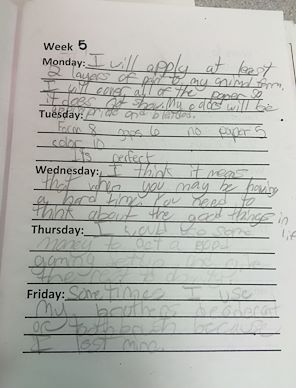 Week 5
Monday: I will apply at least
2 layers of paint to my animal form.
I will cover all of the paper so
it does not show. My colors will be
appropriate and blended.
Tuesday:
Form 8 6 no paper 5
color 10
is perfect
Wednesday: I think it means
that when you may be having
a hard time. You need to
think about the good things in
life
Thursday: I would use some
money to get a good
gaming setup and give
the rest to
Friday: Sometimes I use
my brothers deodorant
or toothbrush because
I lost mine.